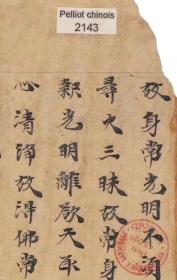 Pelliot chinois
2143
故身常光明不須
尋火三昧故常身
親光明離欲天承
心清淨故得佛常